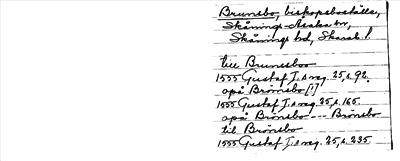 Brunsbo, biskopsboställe,
Skånings-Åsaka sn,
Skånings hd, Skarab. l.
till Brunssboo
1555 Gustaf I:s reg. 25, s. 92.
opå Brönsbo [!]
1555 Gustaf I:s reg. 25, s. 165.
opå Brönsbo --- Brönsbo
til Brönsbo
1555 Gustaf I:s reg. 25, s. 235